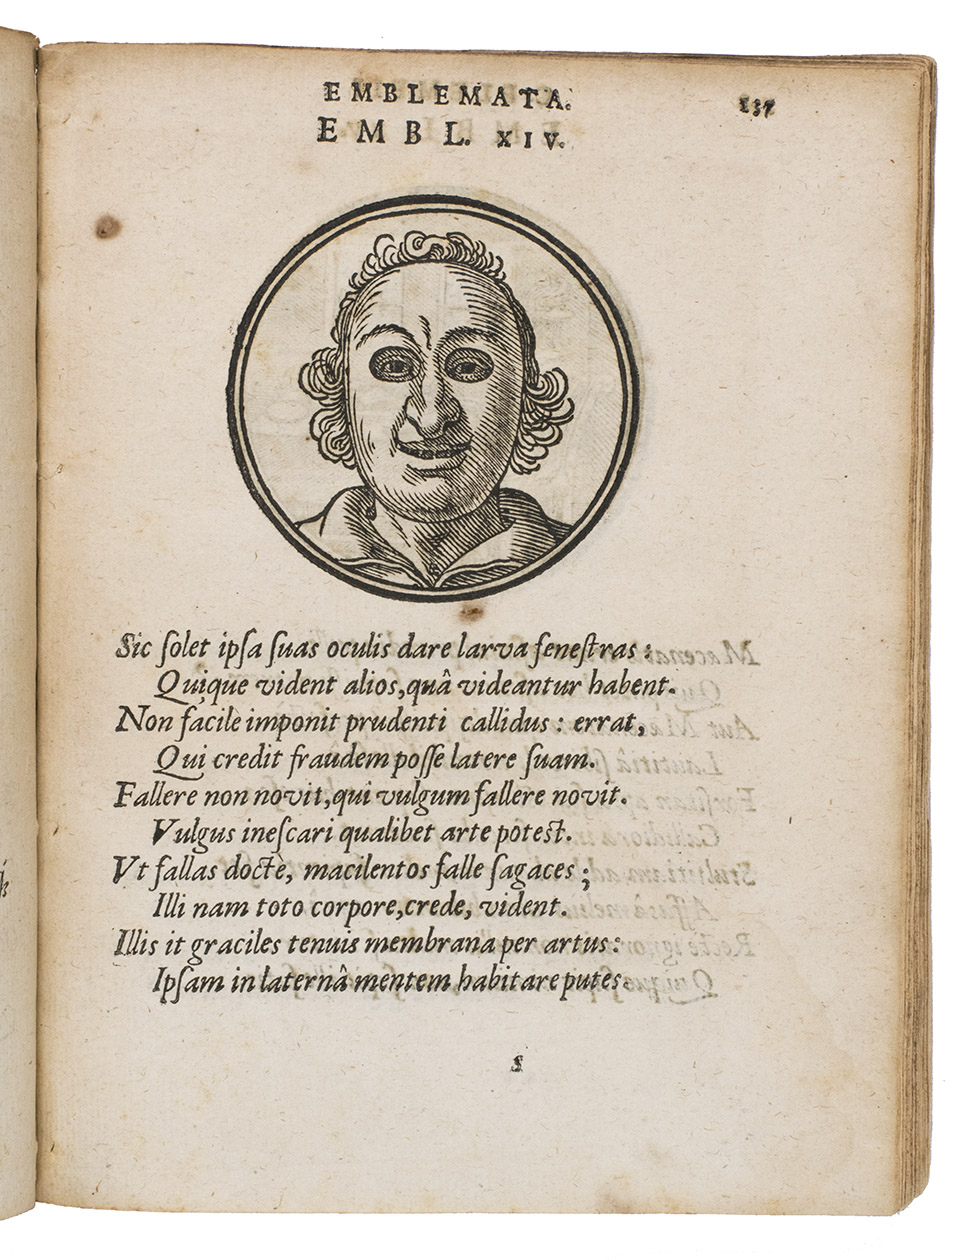 EMBLEMATA.
137
EMBL. XIV.
Sic ſolet ipſa ſuas oculis dare larva feneſtras:
Quique vident alios, quâ videantur habent.
Non facilè imponit prudenti callidus: errat,
Qui credit fraudem poſſe latere ſuam.
Fallere non novit, qui vulgum fallere novit.
Vulgus ineſcari qualibet arte poteſt.
Vt fallas doctè, macilentos falle ſagaces;
Illi nam toto corpore, crede, vident.
Illis it graciles tenuis membrana per artus:
Ipſam in laternâ mentem habitare putes.
S